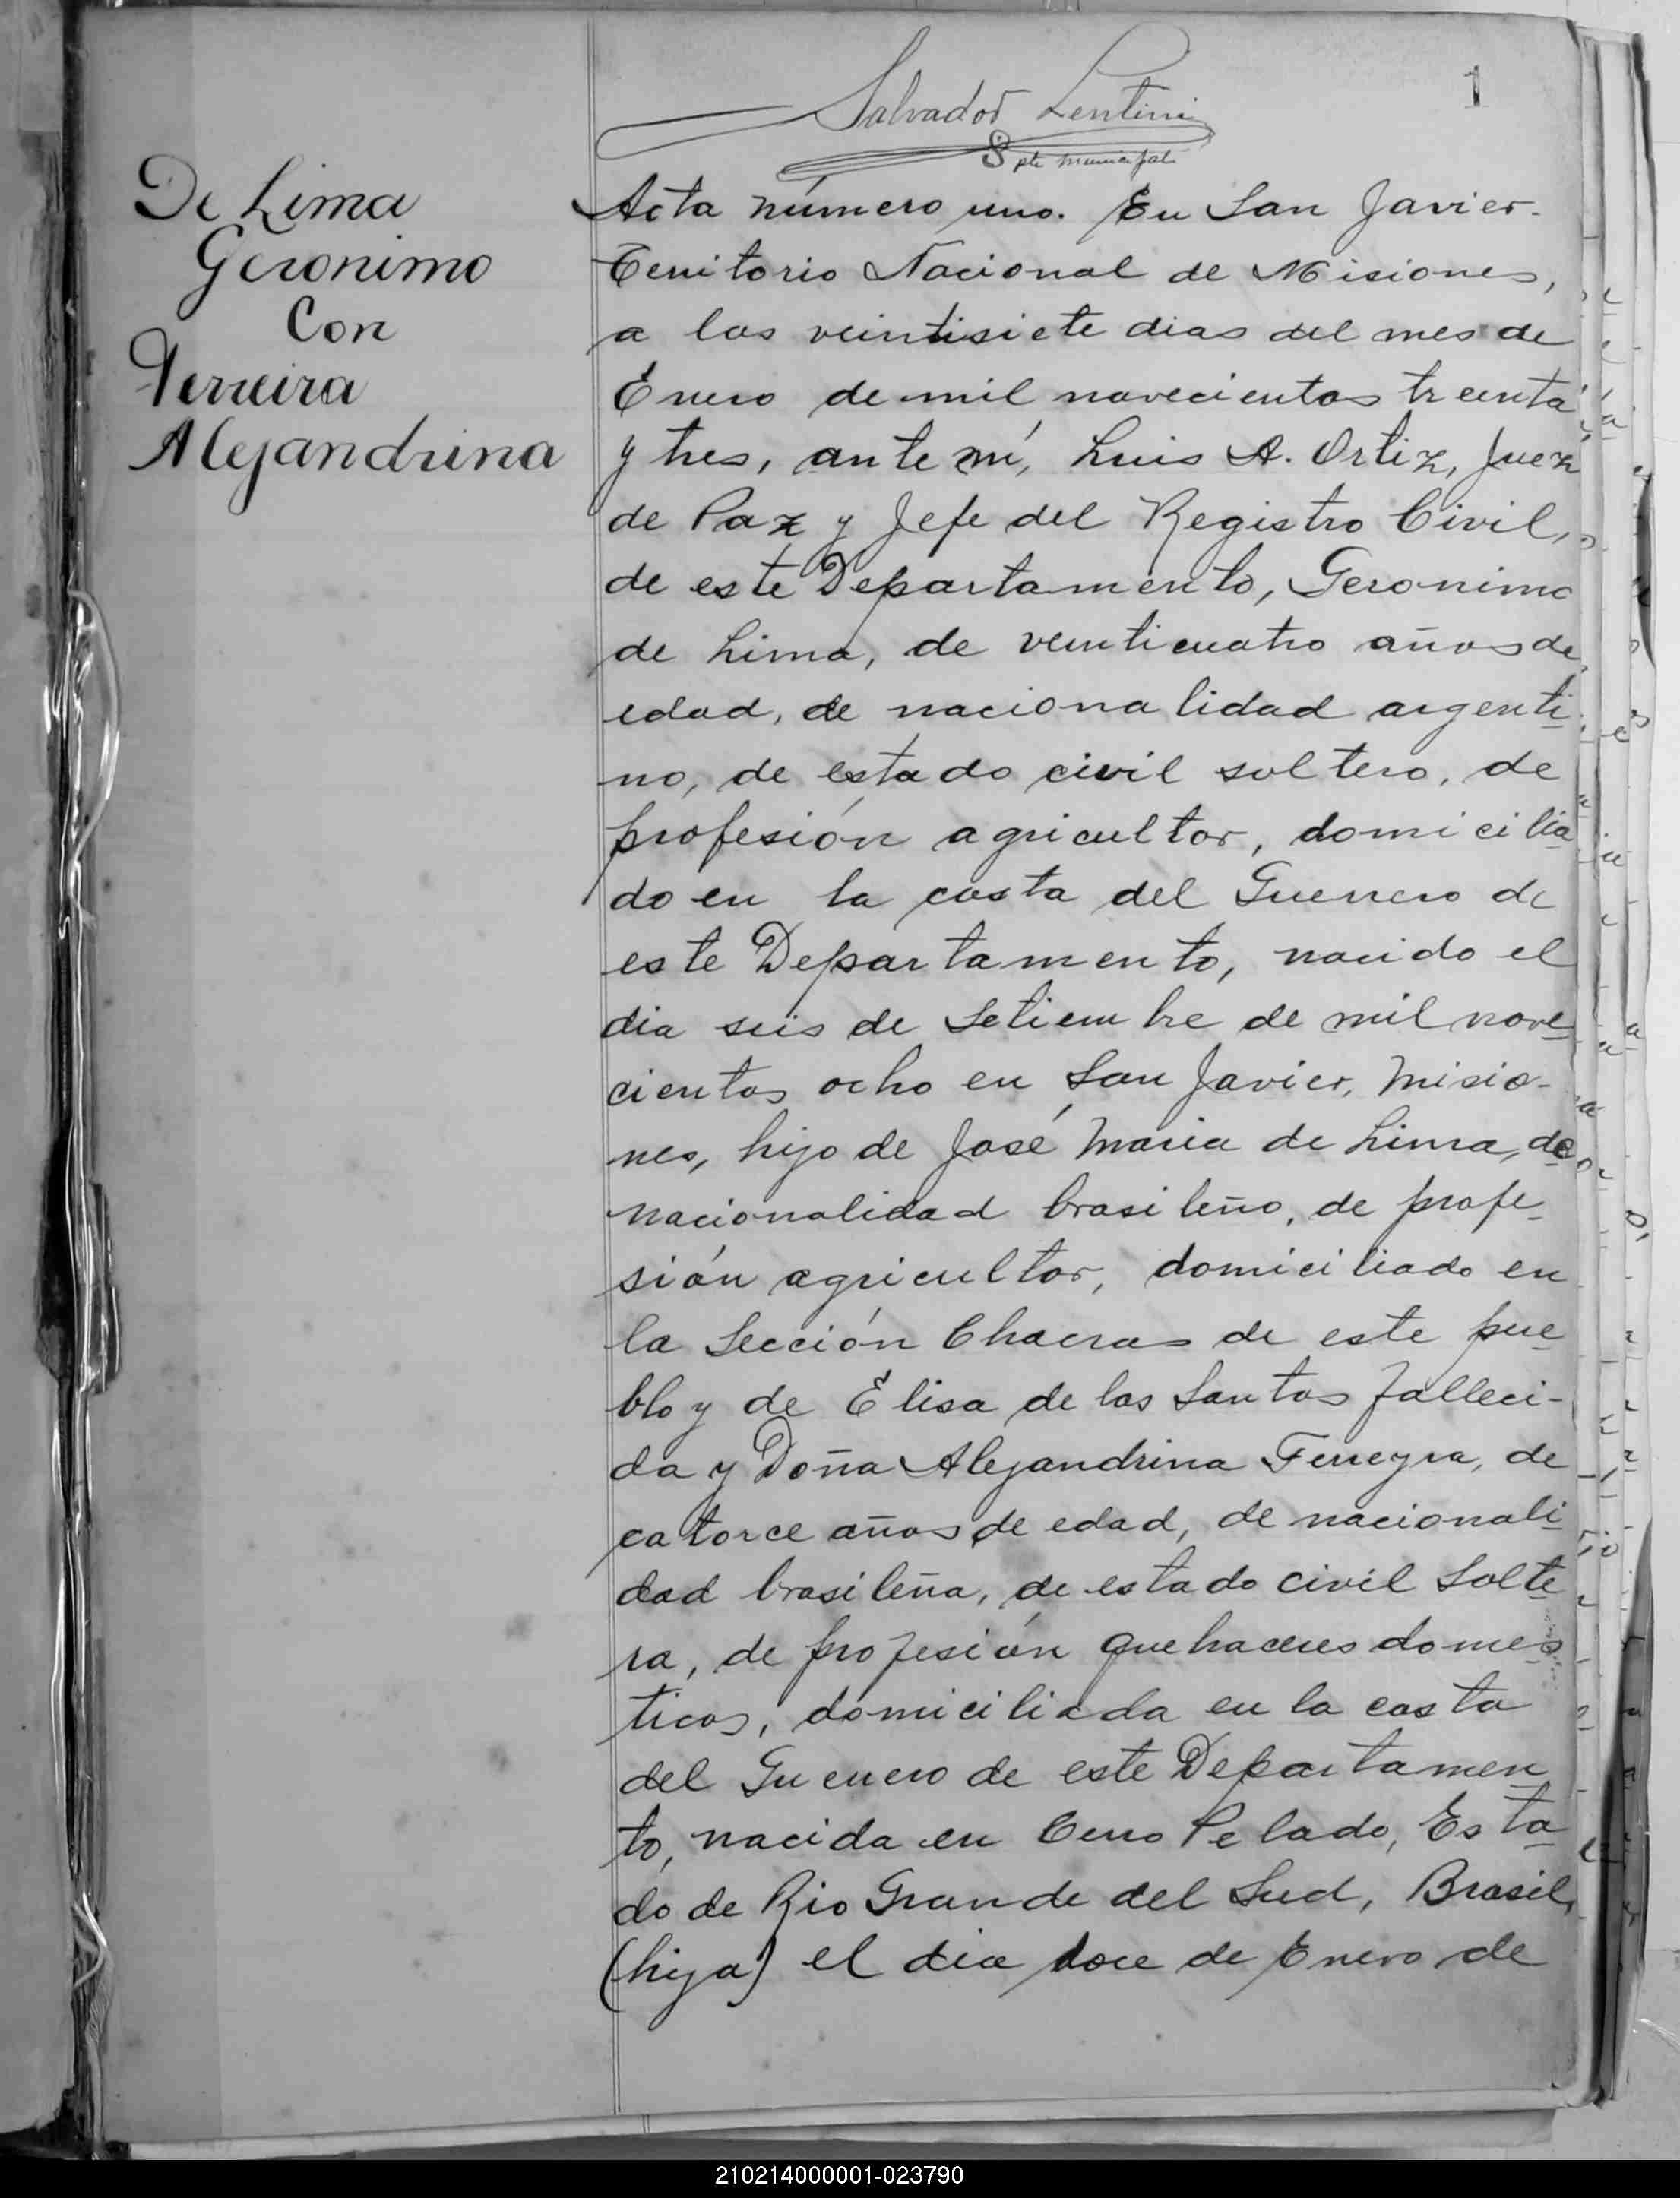 1
Salvador Lentini
Pte municipal
De Lima
Geronimo
Con
Ferreira
Alejandrina
Acta número uno. En San Javier-
Territorio Nacional de Misiones,
a los veintisiete dias del mes de
Enero de mil novecientos treinta
y tres, ante mí, Luis A. Ortiz, Juez
de Paz y Jefe del Registro Civil,
de este Departamento, Geronimo
de Lima, de veinticuatro años de
edad, de nacionalidad argenti-
no, de estado civil soltero, de
profesión agricultor, domicilia-
do en la costa del Guerrero de
este Departamento, nacido el
dia seis de Setiembre de mil nove-
cientos ocho en San Javier, Misio-
nes, hijo de José Maria de Lima, de
nacionalidad brasileño, de profe-
sión agricultor, domiciliado en
la Sección Chacras de este pue-
blo y de Elisa de los Santos falleci-
da y Doña Alejandrina Ferreyra, de
catorce años de edad, de nacionali-
dad brasileña, de estado civil solte-
ra, de profesión quehaceres domes-
ticos, domiciliada en la costa
del Guerrero de este Departamen-
to, nacida en Cerro Pelado, Esta-
do de Rio Grande del Sud, Brasil,
(hija) el dia doce de Enero de
210214000001-023790